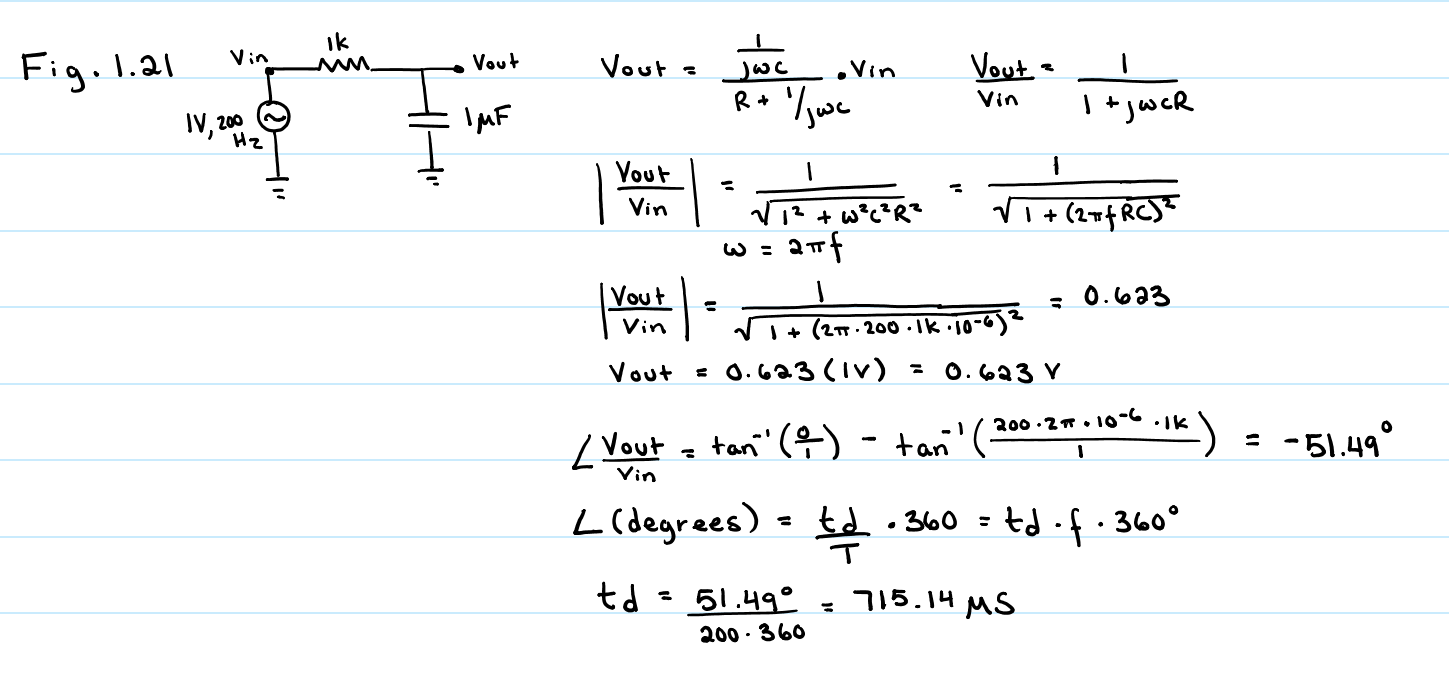 Fig. 1.21
Vin 1k Vout
1V, 200 Hz
1μF
Vout = (1/jωc)/(R + 1/jωc) · Vin    Vout/Vin = 1/(1 + jωcR)
|Vout/Vin| = 1/√(1² + ω²c²R²) = 1/√(1 + (2πfRC)²)
ω = 2πf
|Vout/Vin| = 1/√(1 + (2π·200·1k·10⁻⁶)²) = 0.623
Vout = 0.623 (1V) = 0.623 V
∠ Vout/Vin = tan⁻¹(0/1) − tan⁻¹((200·2π·10⁻⁶·1k)/1) = -51.49°
∠(degrees) = td/T · 360 = td · f · 360°
td = 51.49°/(200·360) = 715.14 μs